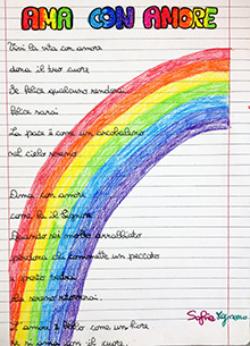 AMA CON AMORE
Vivi la vita con amore
dona il tuo cuore
Se felice qualcuno renderai
felice sarai
La pace è come un arcobaleno
nel cielo sereno
Ama con amore
come fa il Signore
Quando sei molto arrabbiato
perdona chi commette un peccato
e presto
sereno ritornerai.
L'amore è bello come un fiore
se si ama con il cuore.
Sofia